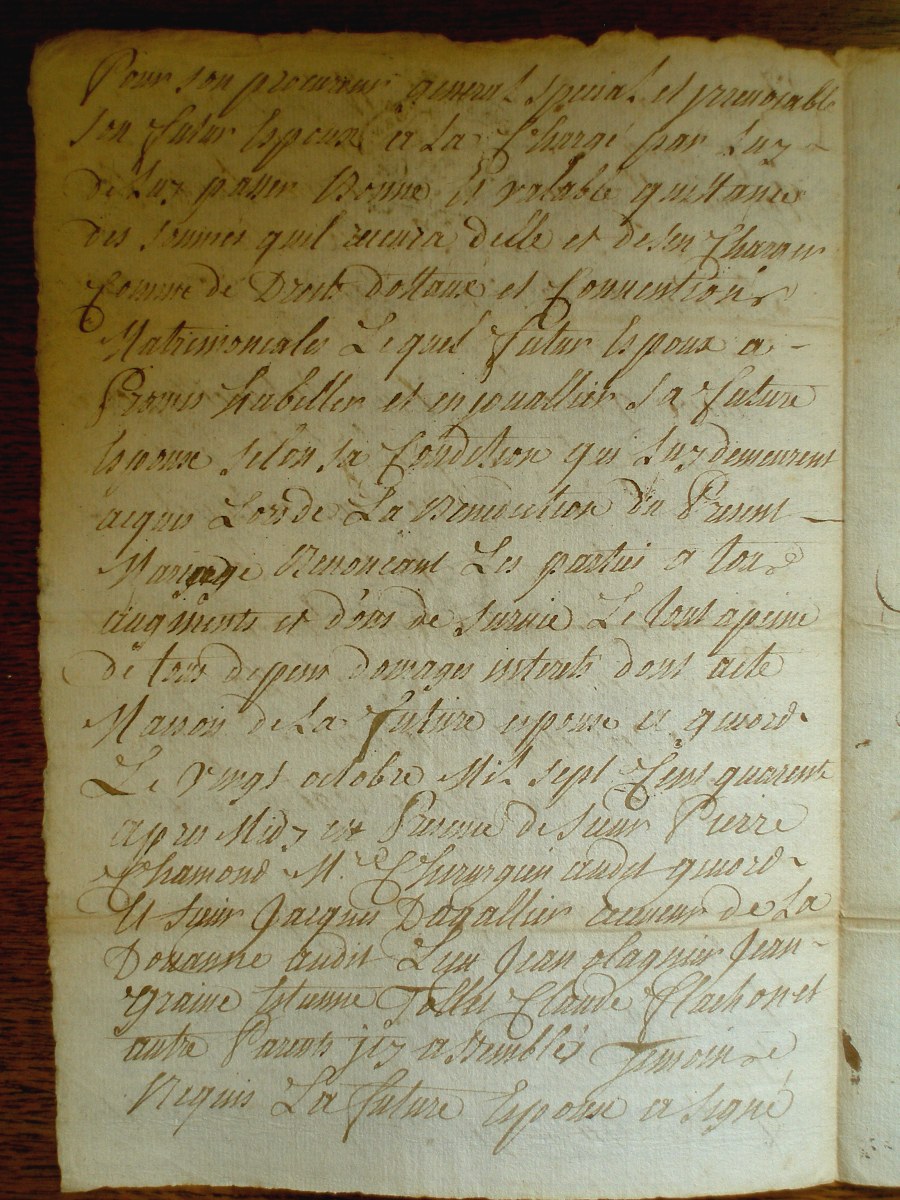 Pour son procureur general special et irrevocable
son futur Espoux a La Chargé par Luy
de Luy passer Bonne Et valable quittance
des sommes quil recevra delle et desen Charger
Comme de Droits dottaux et Conventions
Matrimoniales Lequel futur Espoux a -
Promis habiller et enjouallier sa future
Espouse selon sa Condition qui Luy demeurent
acquis Lorsde La Benediction du Present
Mariage Renoncant Les parties a tous
augments et dons de survie Le tout apeine
de tous depens domages interets dont acte
Maison de La future espouse a givord
Le vingt octobre Mil sept Cent quarente
apres Midy en Presence de sieur Pierre
Chamond Mre Chirurgien audit givord
Et sieur Jacques Dagallier receveur de La
Douanne audit Lieu Jean olagnier Jean
graine Estienne Tollet Claude Flachon et
autre Parents jcy assemblés Temoin
Requis La future Espouse a signé